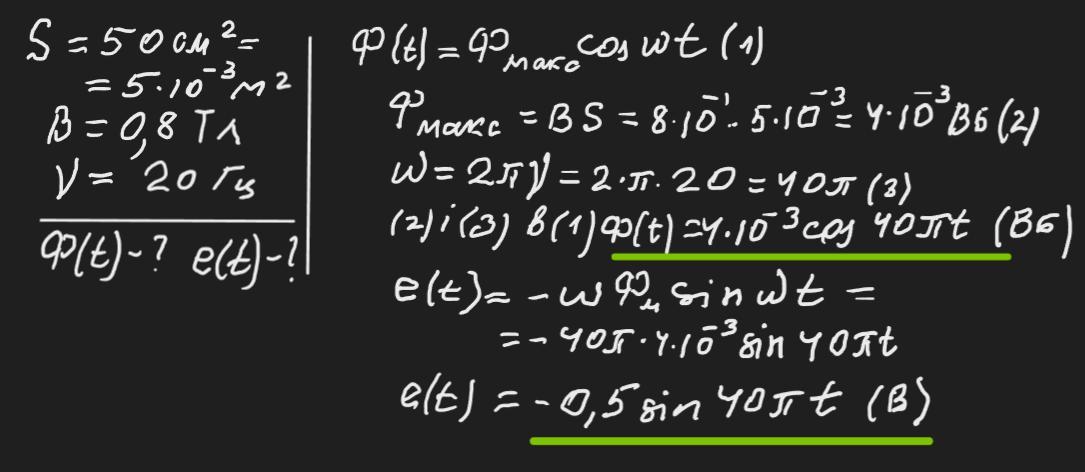 S = 50 см² =
= 5·10⁻³ м²
B = 0,8 Тл
ν = 20 Гц
Ф(t)-? e(t)-?
Ф(t) = Фмакс cos ωt (1)
Фмакс = BS = 8·10⁻¹·5·10⁻³ = 4·10⁻³ Вб (2)
ω = 2πν = 2·π·20 = 40π (3)
(2) і (3) в (1) Ф(t) = 4·10⁻³ cos 40πt (Вб)
e(t) = -ωФм sin ωt =
= -40π·4·10⁻³ sin 40πt
e(t) = -0,5 sin 40πt (В)